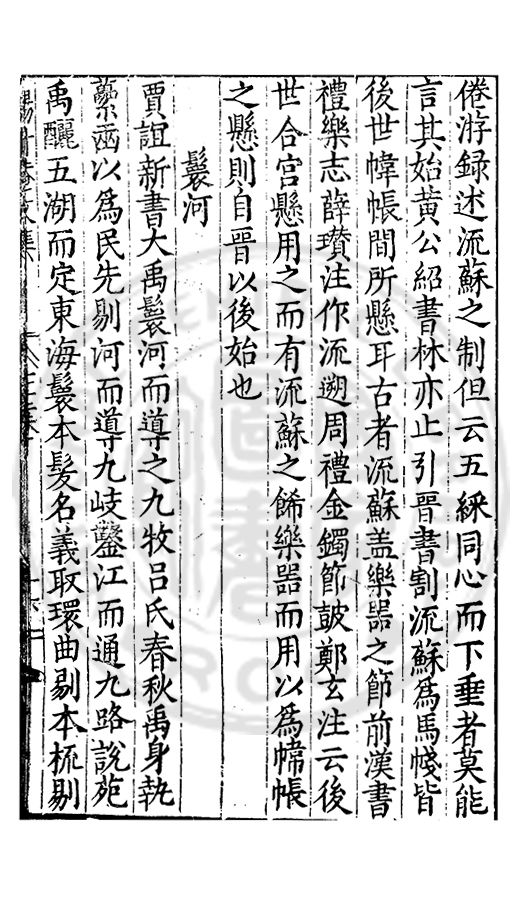 倦游録述流蘇之制但云五綵同心而下垂者莫能
言其始黄公紹書林亦止引晉書割流蘇為馬幯皆
後世幃帳間所懸耳古者流蘇盖樂器之節前漢書
禮樂志薛瓉注作流遡周禮金鐲節鼓鄭玄注云後
世合宫懸用之而有流蘇之餙樂器而用以為幃帳
之懸則自晉以後始也
鬟河
賈誼新書大禹鬟河而導之九牧吕氏春秋禹身執
虆臿以為民先剔河而導九岐鑿江而通九路說苑
禹釃五湖而定東海鬟本髪名義取環曲剔本梳剔